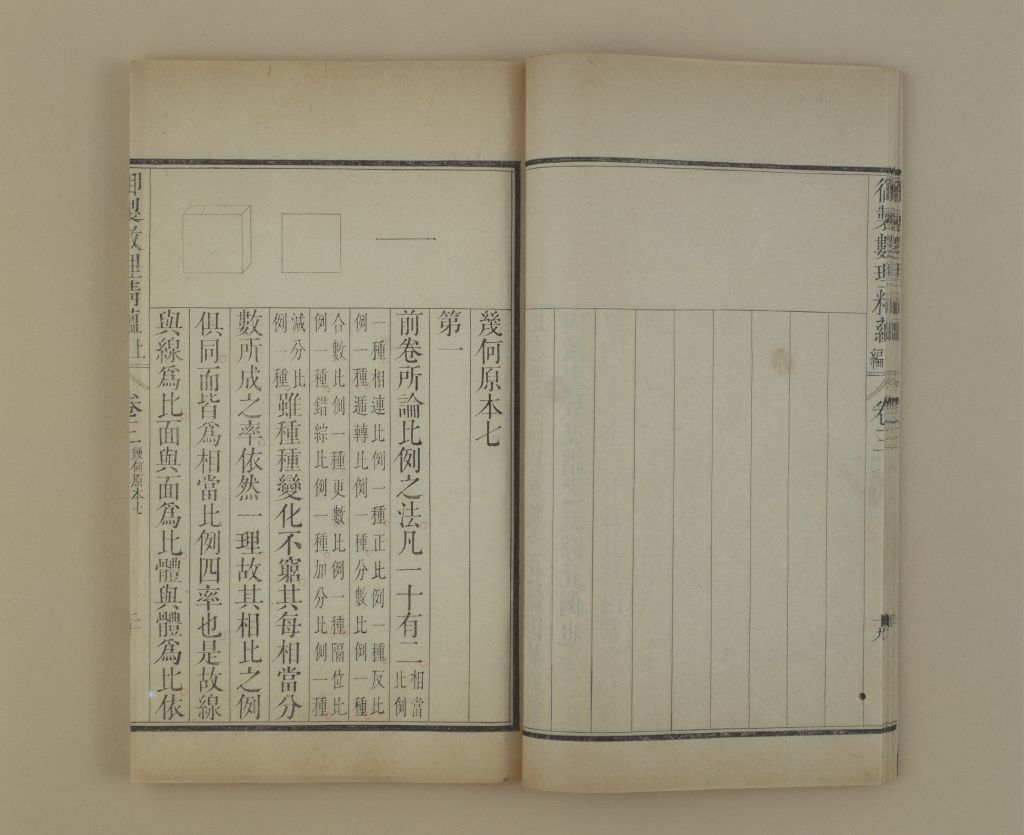 御製數理精蘊
編
卷三
幾何原本七
第一
前卷所論比例之法。凡一十有二。相當比例
一種相連比例一種。正比例一種。反比
例一種。遞轉比例一種。分數比例一種
合數比例一種更數比例一種。隔位比
例一種。錯綜比例一種。加分比例一種。
減分比例一種。雖種種變化不窮。其每相當分
數所成之率。依然一理。故其相比之例
俱同。而皆為相當比例四率也。是故線
與線為比。面與面為比。體與體為比。依
御製數理精蘊
上
卷三
幾何原本七